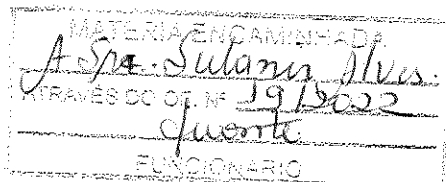 MATÉRIA ENCAMINHADA
A Sra. Sulamir Alves.
ATRAVÉS DO OF. Nº 191/2022
FUNCIONÁRIO